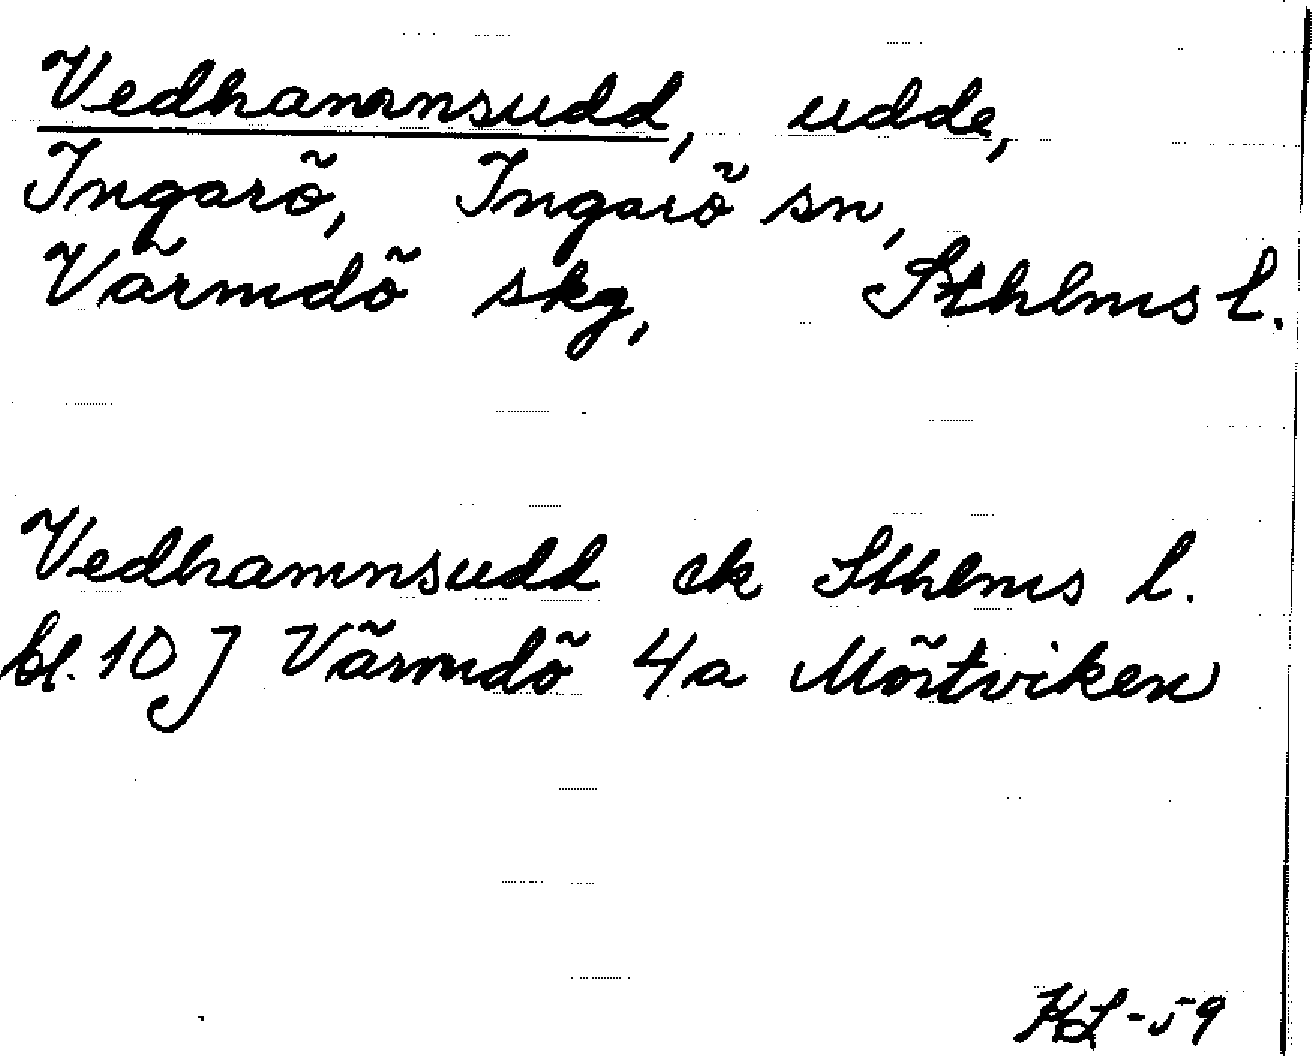 Vedhamnsudd, udde,
Ingarö, Ingarö sn,
Värmdö skg, Sthlms l.
Vedhamnsudd ek Sthlms l.
bl. 10 J Värmdö 4a Mörtviken
KL-59